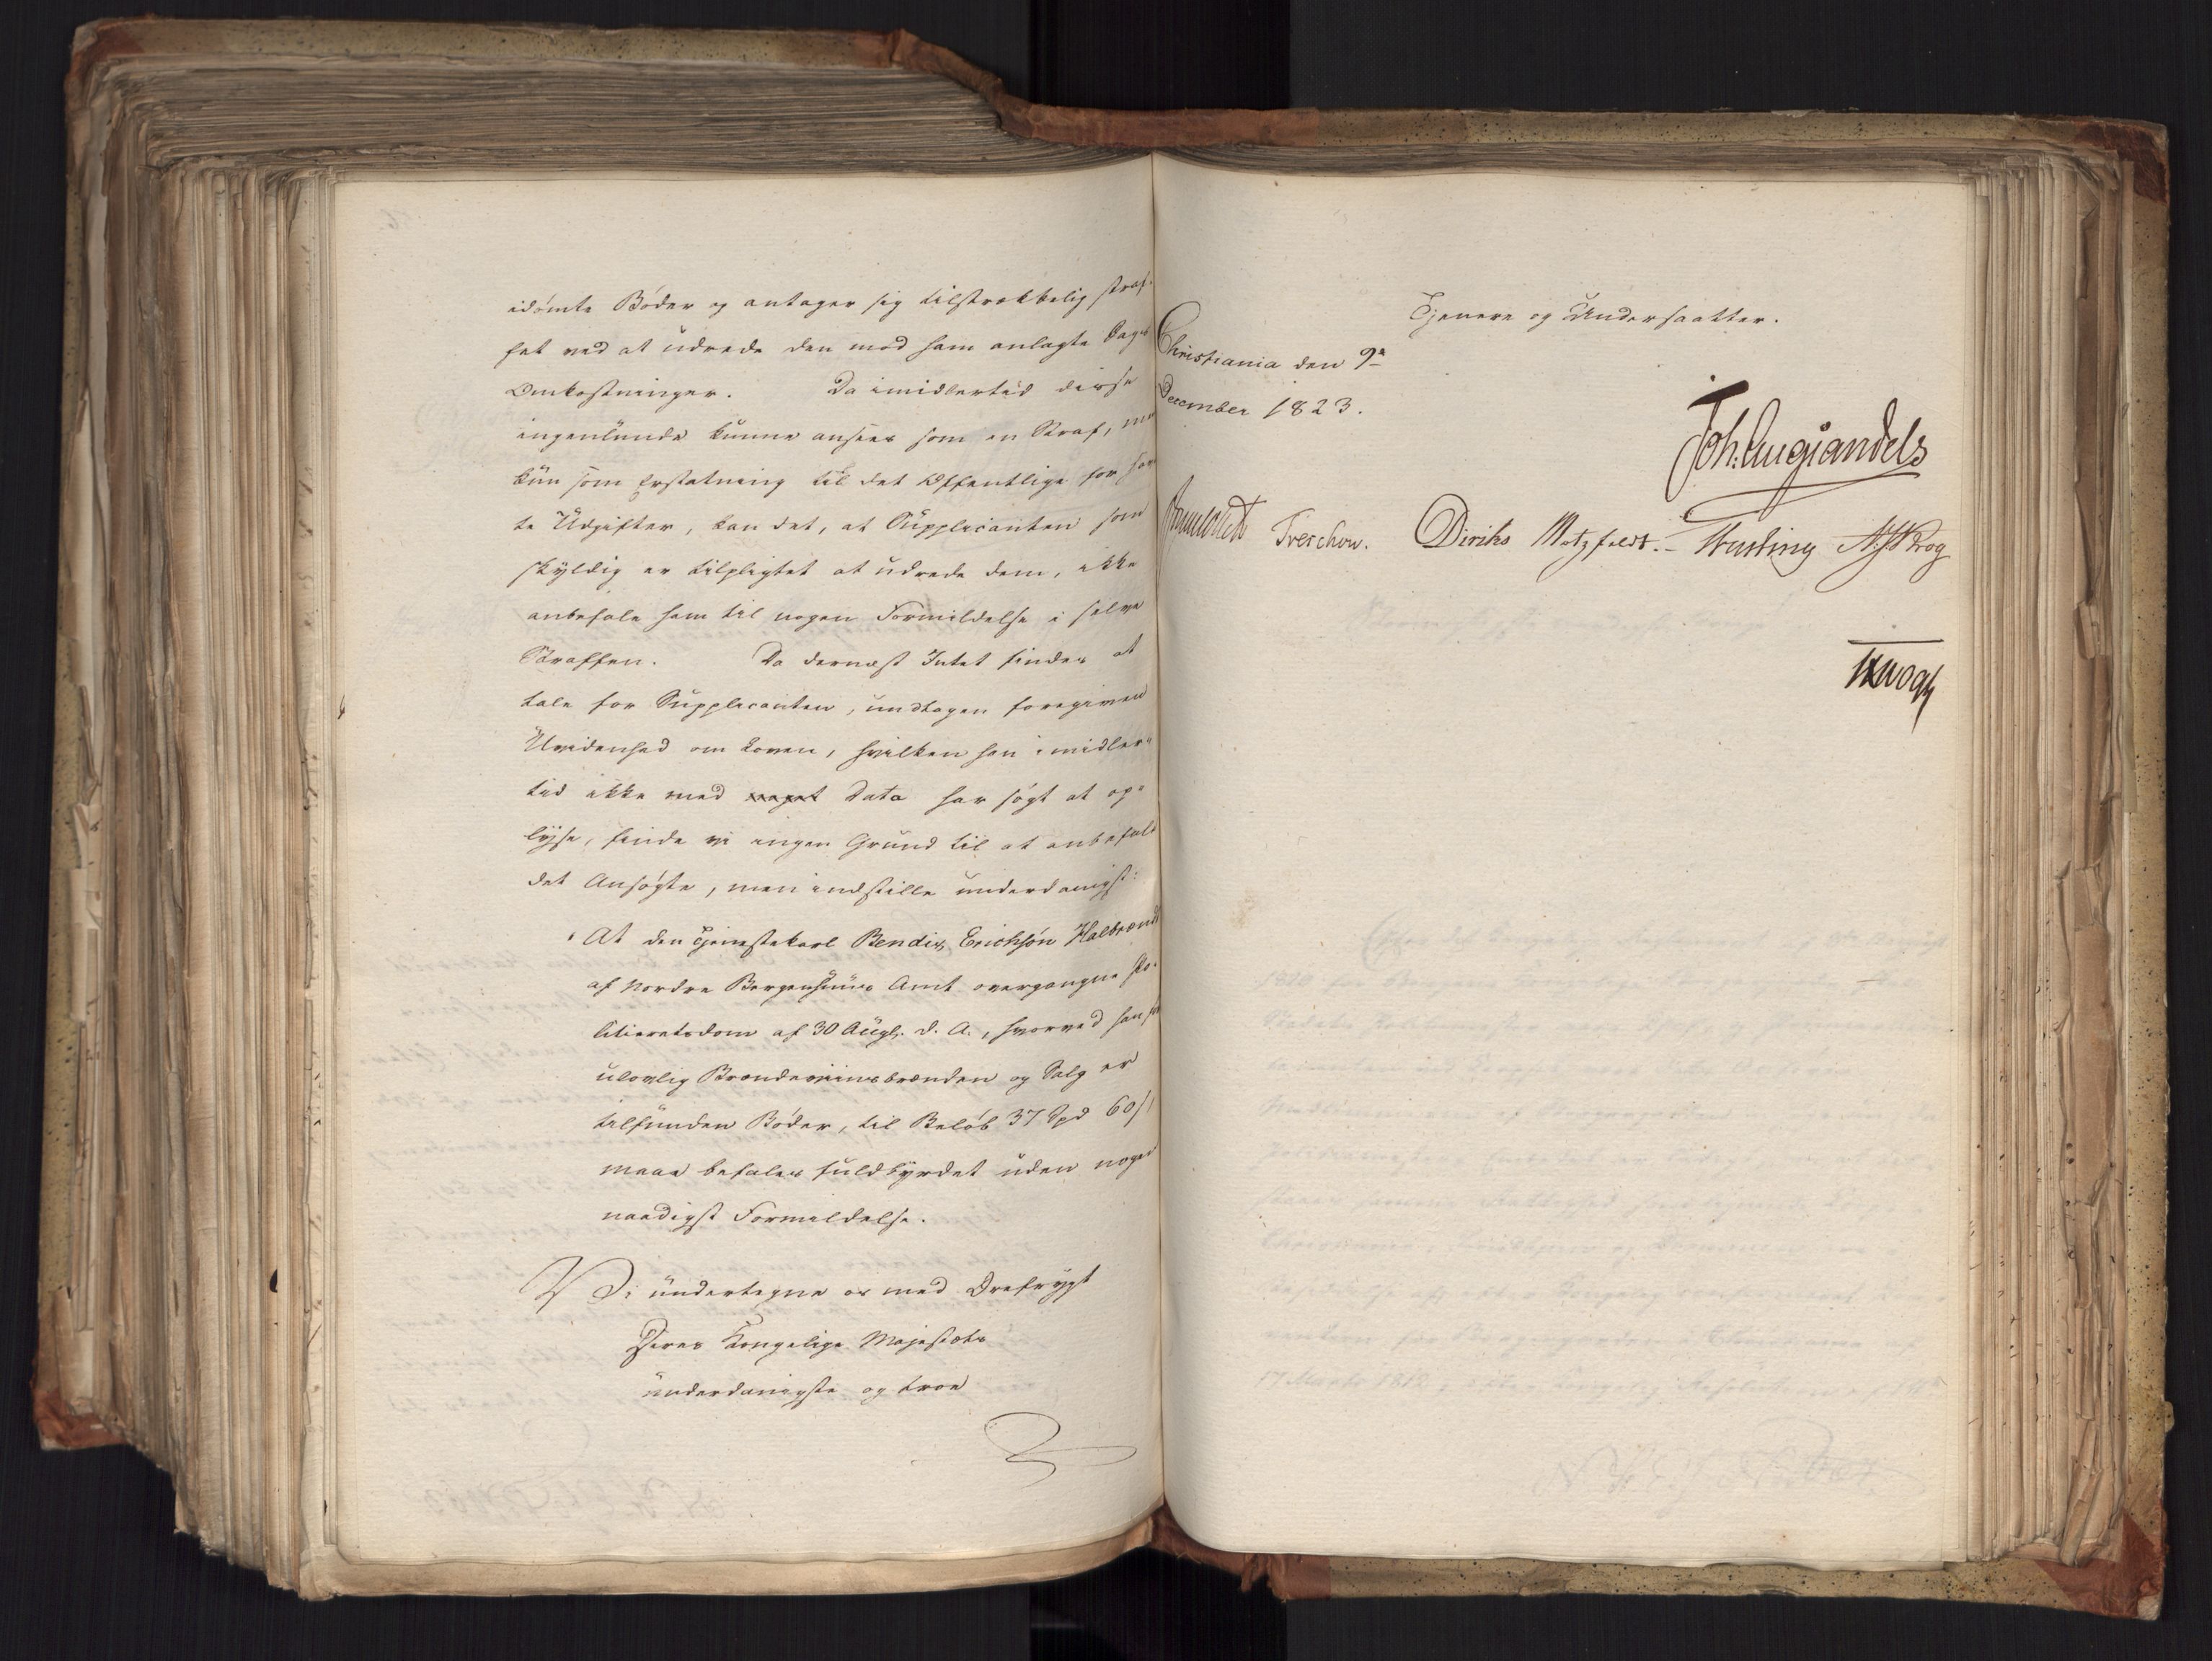 idömte Böder og antager sig tilstrækkelig straf-
fet ved at udrede den mod ham anlagte Sags
Omkostninger. Da imidlertid disse
ingenlunde kunne ansees som en Straf, men
kun som Erstatning til det Offentlige for hav-
te Udgifter, kan det, at Supplicanten som
skyldig er tilpligtet at udrede dem, ikke
anbefale ham til nogen Formildelse i selve
Straffen. Da dernæst Intet findes at
tale for Supplicanten, undtagen foregiven
Uvidenhed om Loven, hvilken han imidler-
tid ikke med noget Data har søgt at op-
lyse, finde vi ingen Grund til at anbefale
det Ansøgte, men indstille underdanigst:
At den Tjenestekarl Bendix Erichsön Halbrend
af Nordre Bergenhuus Amt overgangne Po-
litieretsdom af 30 Augs. d. A., hvorved han for
ulovlig Brændeviinsbrænden og Salg er
tilfunden Böder, til Beløb 37 Spd 60 s
maae befales fuldbyrdet uden nogen
naadigst Formildelse.
Vi undertegne os med Ærefrygt
Deres Kongelige Majestæts
underdanigste og troe
Tjenere og Undersaatter.
Christiania den 9de
December 1823.
Joh: Aug: Sandels
Sommerhielm Treschow. Diriks Motzfeldt. Krog